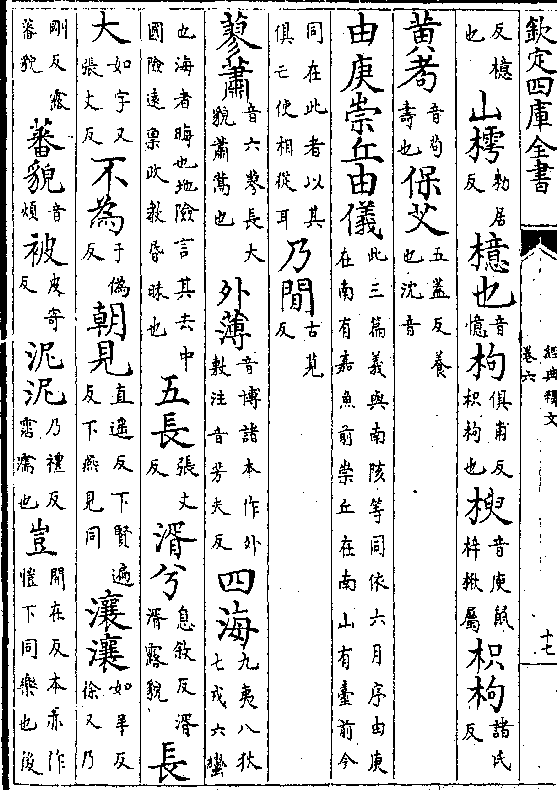 欽定四庫全書
經典釋文
卷六
十七
反檍也山樗勑居反檍也音憶枸俱甫反枳枸也楰音庾鼠梓楸屬枳枸諸氏反
黄耇音苟壽也保艾五葢反養也沈音
由庚崇丘由儀此三篇義與南陔等同依六月序由庚在南有嘉魚前崇丘在南山有臺前今
同在此者以其俱亡使相從耳乃閒古莧反
蓼蕭音六蓼長大貌蕭蒿也外薄音博諸本作外敷注音芳夫反四海九夷八狄七戎六蠻
也海者晦也地險言其去中國險遠稟政教昏昧也五長張丈反湑兮息敘反湑湑露貌長
大如字又張丈反不為于偽反朝見直遥反下賢遍反下燕見同瀼瀼如羊反徐又乃
剛反露蕃貌蕃貌音煩被皮寄反泥泥乃禮反霑濡也豈開在反本亦作愷下同樂也後